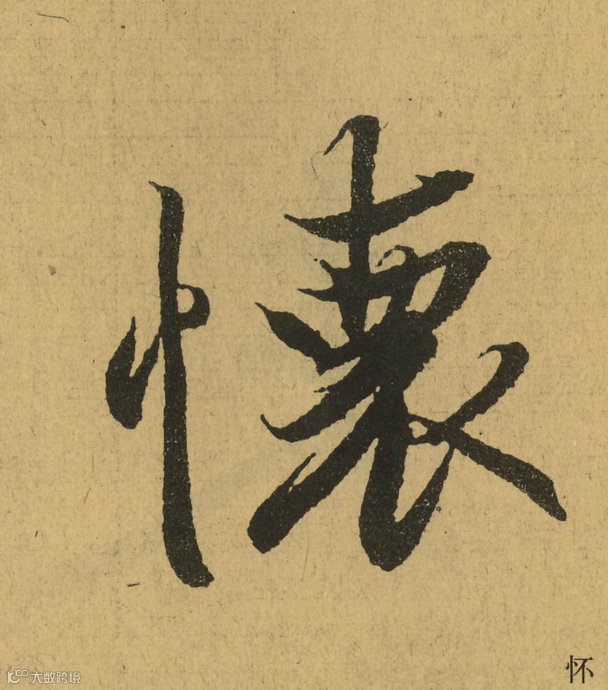 懷
怀
大数跨境